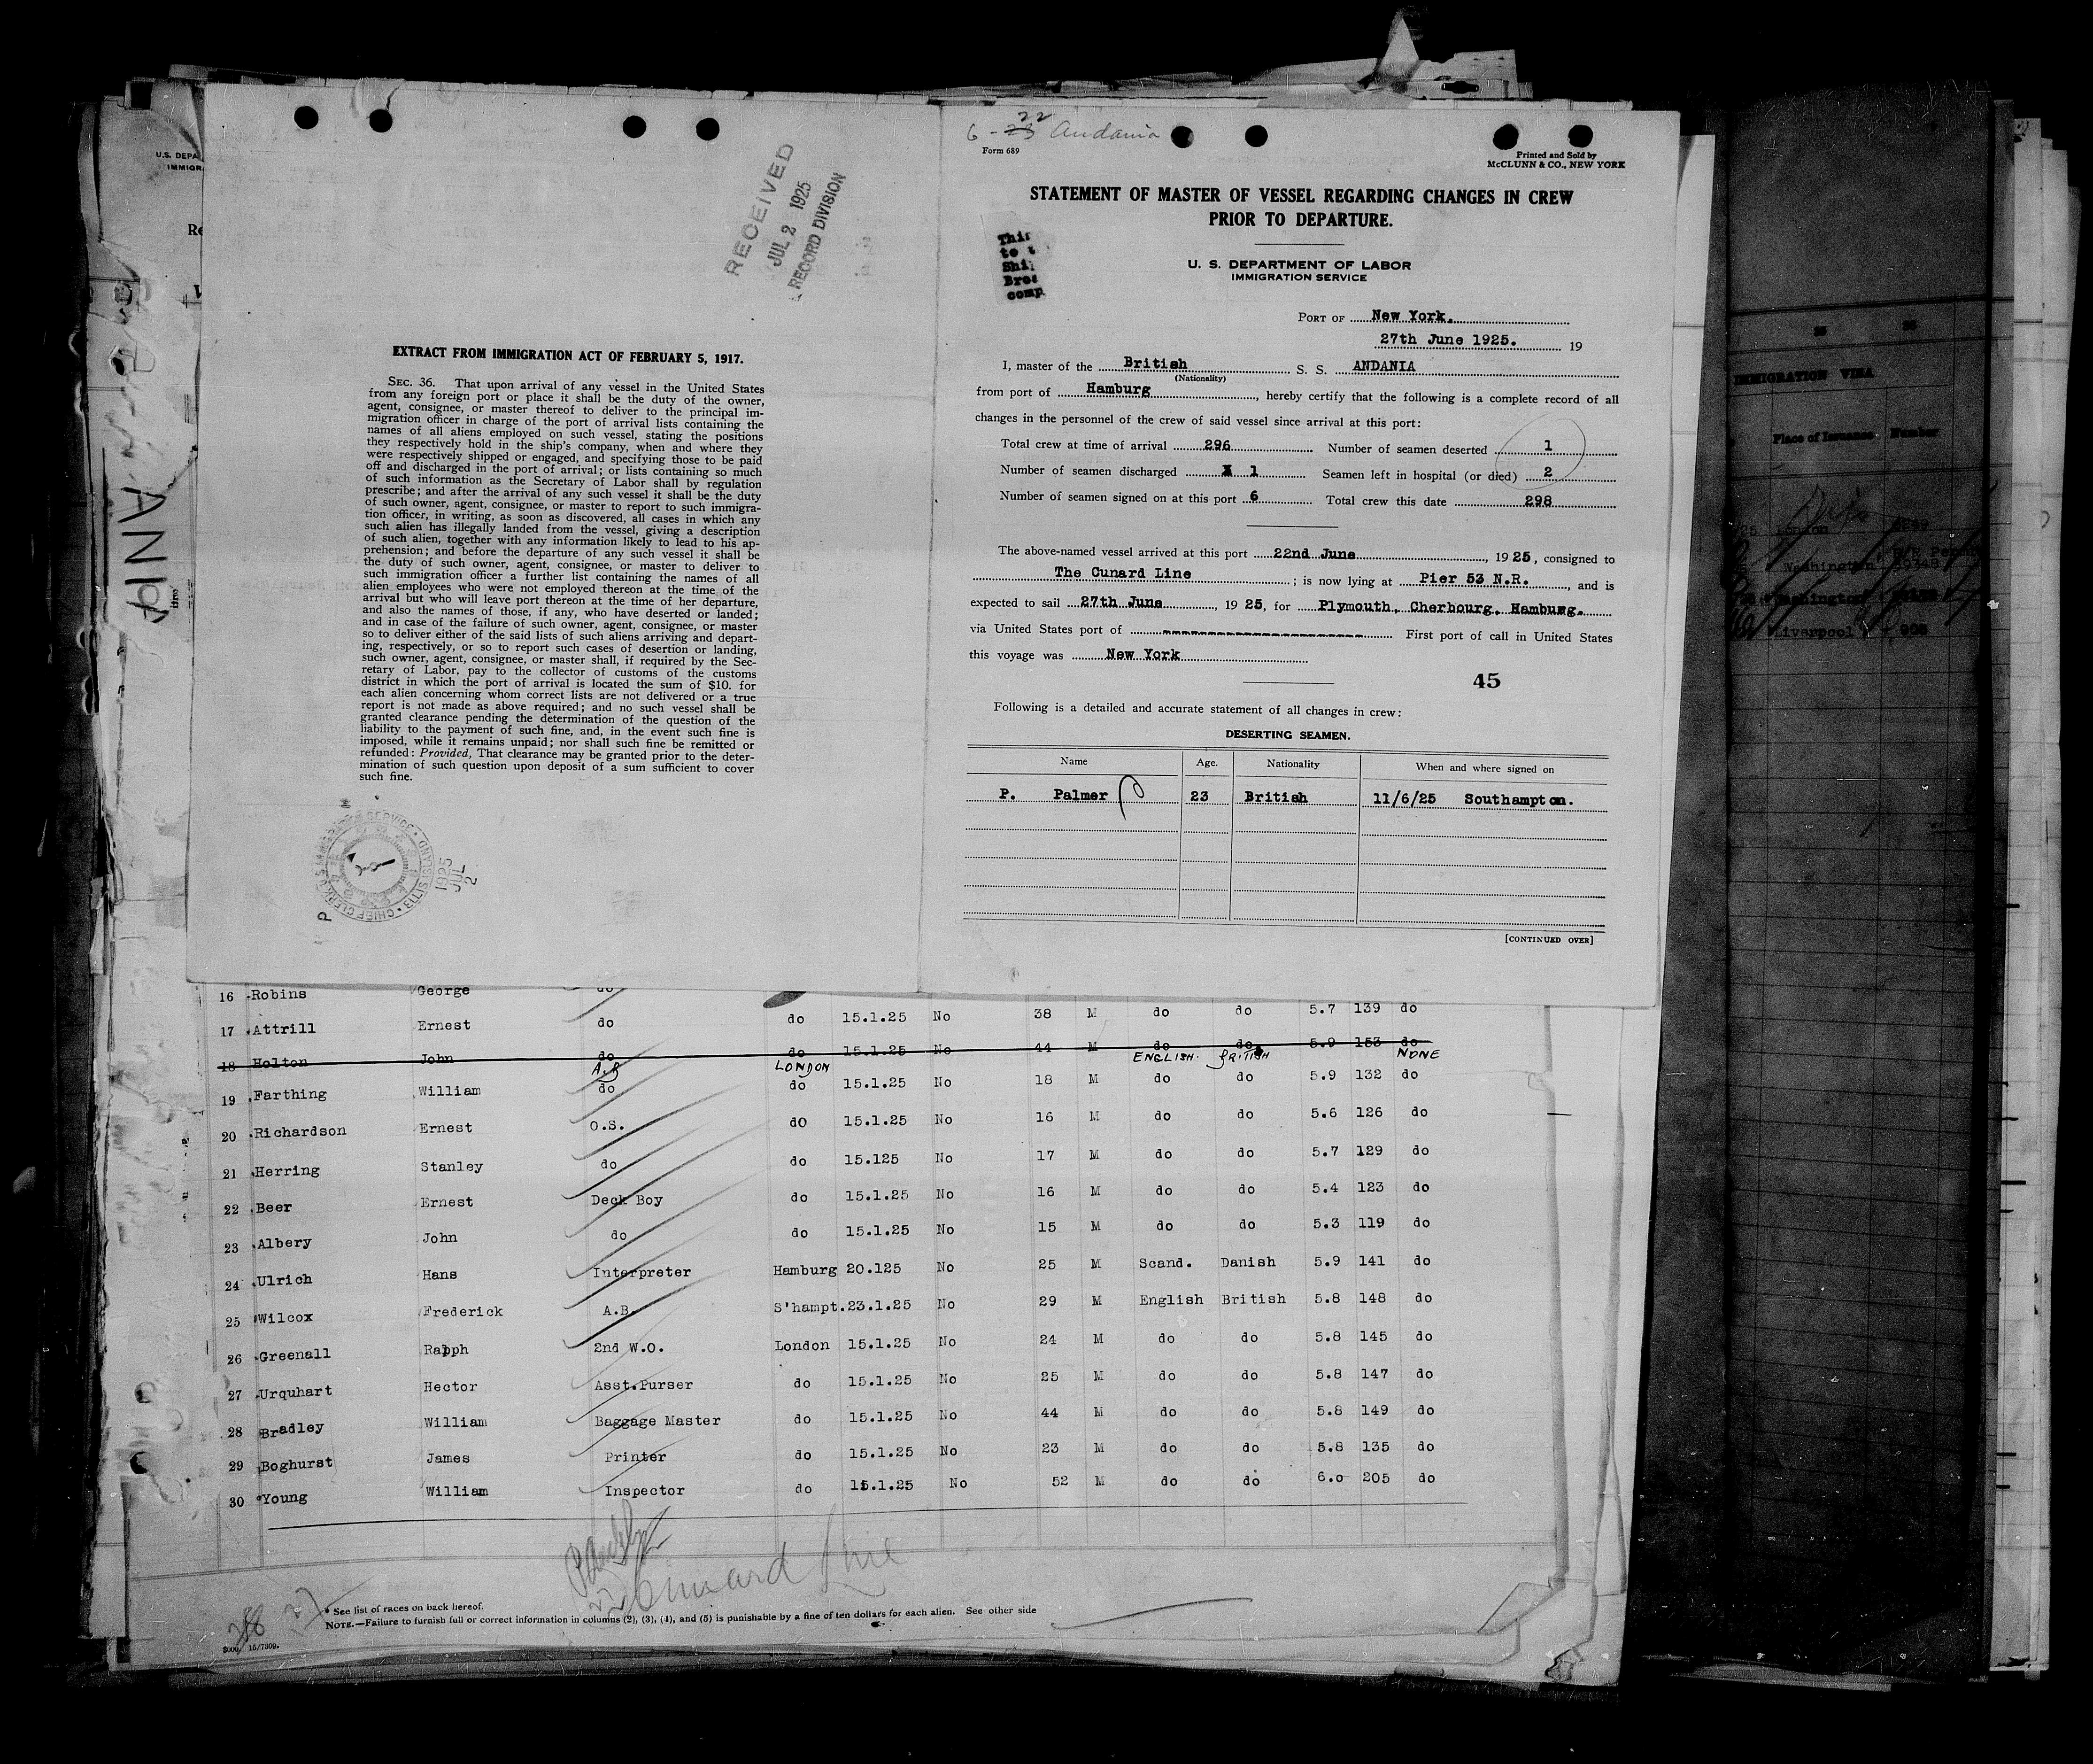 U.S. DEPA
IMMIGR
ANP
RECEIVED
JUL 2 1925
RECORD DIVISION
EXTRACT FROM IMMIGRATION ACT OF FEBRUARY 5, 1917.
SEC. 36. That upon arrival of any vessel in the United States
from any foreign port or place it shall be the duty of the owner,
agent, consignee, or master thereof to deliver to the principal im-
migration officer in charge of the port of arrival lists containing the
names of all aliens employed on such vessel, stating the positions
they respectively hold in the ship's company, when and where they
were respectively shipped or engaged, and specifying those to be paid
off and discharged in the port of arrival; or lists containing so much
of such information as the Secretary of Labor shall by regulation
prescribe; and after the arrival of any such vessel it shall be the duty
of such owner, agent, consignee, or master to report to such immigra-
tion officer, in writing, as soon as discovered, all cases in which any
such alien has illegally landed from the vessel, giving a description
of such alien, together with any information likely to lead to his ap-
prehension; and before the departure of any such vessel it shall be
the duty of such owner, agent, consignee, or master to deliver to
such immigration officer a further list containing the names of all
alien employees who were not employed thereon at the time of the
arrival but who will leave port thereon at the time of her departure,
and also the names of those, if any, who have deserted or landed;
and in case of the failure of such owner, agent, consignee, or master
so to deliver either of the said lists of such aliens arriving and depart-
ing, respectively, or so to report such cases of desertion or landing,
such owner, agent, consignee, or master shall, if required by the Sec-
retary of Labor, pay to the collector of customs of the customs
district in which the port of arrival is located the sum of $10. for
each alien concerning whom correct lists are not delivered or a true
report is not made as above required; and no such vessel shall be
granted clearance pending the determination of the question of the
liability to the payment of such fine, and, in the event such fine is
imposed, while it remains unpaid; nor shall such fine be remitted or
refunded: Provided, That clearance may be granted prior to the deter-
mination of such question upon deposit of a sum sufficient to cover
such fine.
CHIEF CLERK U.S. IMMIGRANT SERVICE • ELLIS ISLAND •
1925 JUL 2 P
6 - 23 22 Andania
Form 689
Printed and Sold by
McCLUNN & CO., NEW YORK
STATEMENT OF MASTER OF VESSEL REGARDING CHANGES IN CREW
PRIOR TO DEPARTURE.
U. S. DEPARTMENT OF LABOR
IMMIGRATION SERVICE
PORT OF New York.
27th June 1925. 19
I, master of the British S. S. ANDANIA
(Nationality)
from port of Hamburg, hereby certify that the following is a complete record of all
changes in the personnel of the crew of said vessel since arrival at this port:
Total crew at time of arrival 296 Number of seamen deserted 1
Number of seamen discharged X 1 Seamen left in hospital (or died) 2
Number of seamen signed on at this port 6 Total crew this date 298
The above-named vessel arrived at this port 22nd June, 19 25, consigned to
The Cunard Line; is now lying at Pier 53 N.R., and is
expected to sail 27th June, 19 25, for Plymouth, Cherbourg, Hamburg.
via United States port of ---------------------- First port of call in United States
this voyage was New York
45
Following is a detailed and accurate statement of all changes in crew:
DESERTING SEAMEN.
Name Age. Nationality When and where signed on
P. Palmer 23 British 11/6/25 Southampton.
[CONTINUED OVER]
IMMIGRATION VISA
Place of Issuance Number
London
Washington
Washington
Liverpool
16 Robins George do
17 Attrill Ernest do do 15.1.25 No 38 M do do 5.7 139 do
18 Holton John do do 15.1.25 No 44 M do do 5.9 153 do
A.B LONDON ENGLISH. BRITISH NONE
19 Farthing William do do 15.1.25 No 18 M do do 5.9 132 do
20 Richardson Ernest O.S. do 15.1.25 No 16 M do do 5.6 126 do
21 Herring Stanley do do 15.125 No 17 M do do 5.7 129 do
22 Beer Ernest Deck Boy do 15.1.25 No 16 M do do 5.4 123 do
23 Albery John do do 15.1.25 No 15 M do do 5.3 119 do
24 Ulrich Hans Interpreter Hamburg 20.125 No 25 M Scand. Danish 5.9 141 do
25 Wilcox Frederick A.B. S'hampt. 23.1.25 No 29 M English British 5.8 148 do
26 Greenall Ralph 2nd W.O. London 15.1.25 No 24 M do do 5.8 145 do
27 Urquhart Hector Asst.Purser do 15.1.25 No 25 M do do 5.8 147 do
28 Bradley William Baggage Master do 15.1.25 No 44 M do do 5.8 149 do
29 Boghurst James Printer do 15.1.25 No 23 M do do 5.8 135 do
30 Young William Inspector do 15.1.25 No 52 M do do 6.0 205 do
Cunard Line
* See list of races on back hereof.
NOTE.—Failure to furnish full or correct information in columns (2), (3), (4), and (5) is punishable by a fine of ten dollars for each alien. See other side